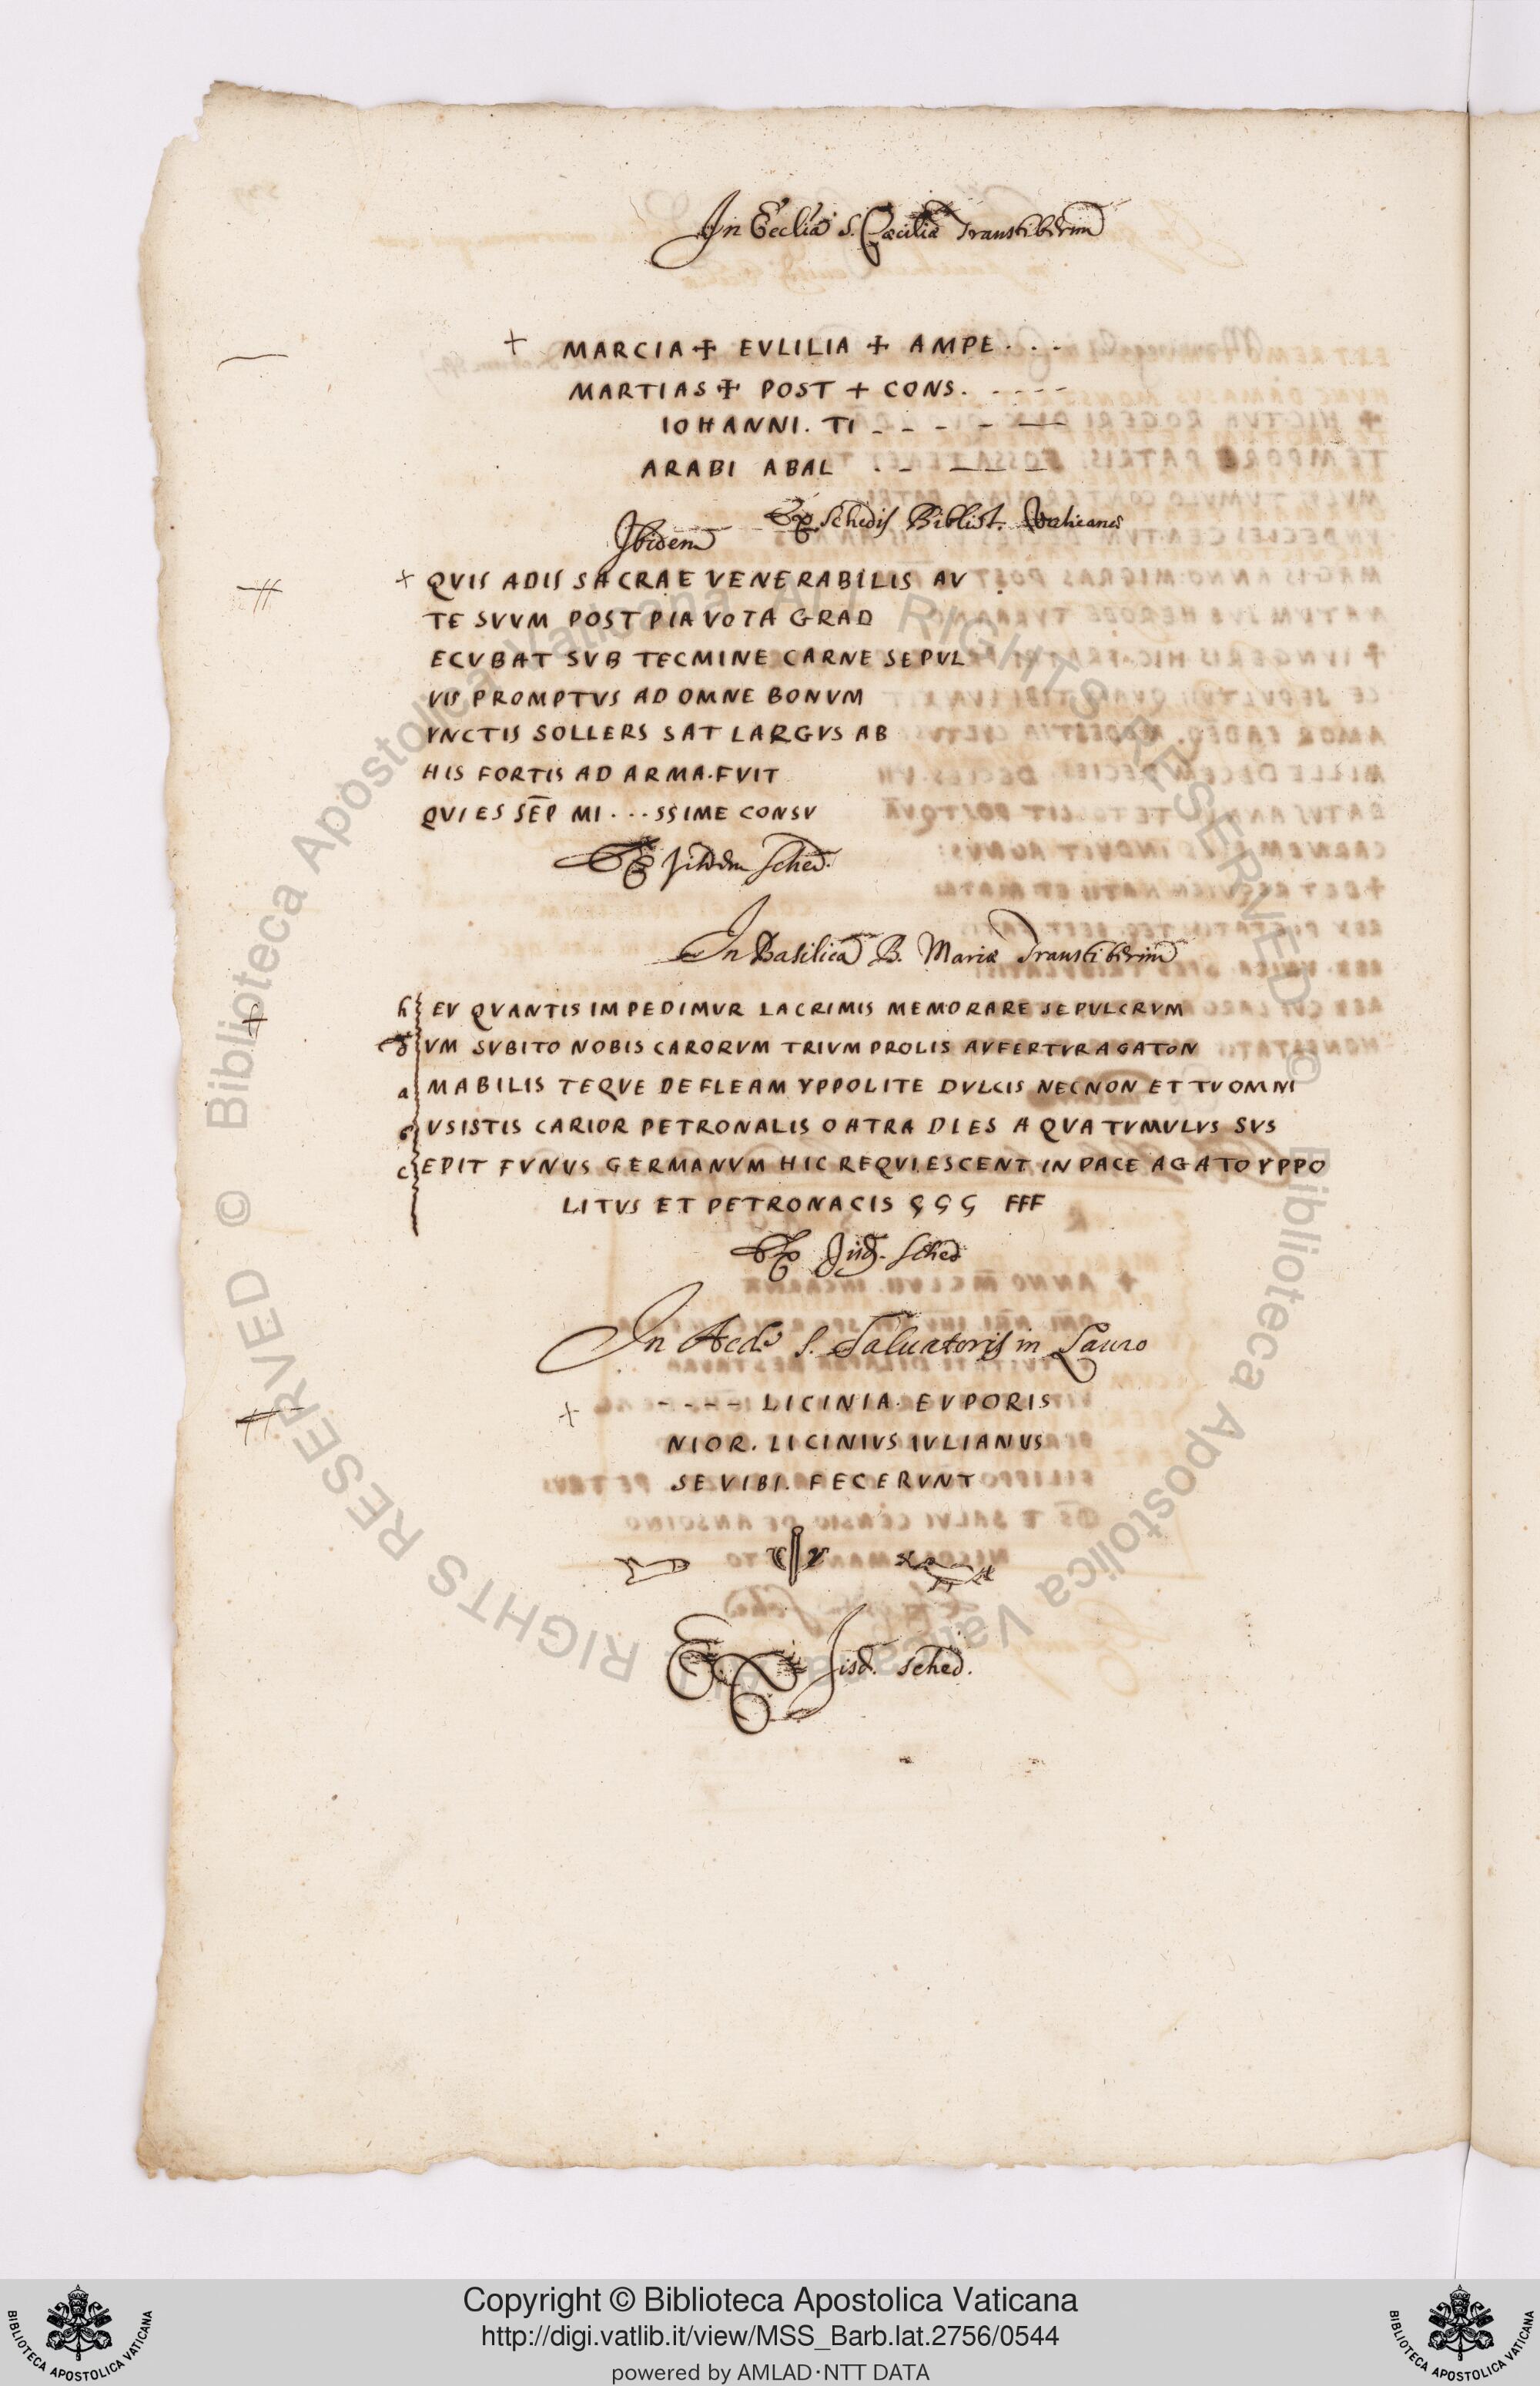 In Ecclia S. Cæciliæ Transtiberim
+ MARCIA ✠ EVLILIA ✠ AMPE . . .
MARTIAS ✠ POST + CONS. - - - -
IOHANNI. TI - - - - —
ARABI ABAL . - — — -
Ex Schedis Bibliot. Vaticanæ
Ibidem
+ QVIS ADIS SACRAE VENERABILIS AV
TE SVVM POST PIA VOTA GRAD
ECVBAT SVB TECMINE CARNE SEPUL
VIS PROMPTVS AD OMNE BONVM
VNCTIS SOLLERS SAT LARGVS AB
HIS FORTIS AD ARMA. FVIT
QVI ES SEP MI . . . SSIME CONSV
Ex iisdem Sched.
In Basilica B. Mariæ Transtiberim
h EV QVANTIS IMPEDIMVR LACRIMIS MEMORARE SEPULCRVM
VM SVBITO NOBIS CARORVM TRIVM PROLIS AVFERTVR AGATON
a MABILIS TEQVE DEFLEAM YPPOLITE DVLCIS NECNON ET TV OMNI
VSISTIS CARIOR PETRONALIS O ATRA DIES A QVA TVMVLVS SVS
c EPIT FVNVS GERMANVM HIC REQVIESCENT IN PACE AGATO YPPO
LITVS ET PETRONACIS ς ς ς FFF
Ex iisd. Sched
In Aede S. Saluatoris in Lauro
+ - - - - LICINIA. EVPORIS
NIOR. LICINIVS IVLIANVS
SE VIBI. FECERVNT
Ex iisd. sched.
© Biblioteca Apostolica Vaticana ALL RIGHTS RESERVED
© Biblioteca Apostolica Vaticana ALL RIGHTS RESERVED
BIBLIOTECA APOSTOLICA VATICANA
Copyright © Biblioteca Apostolica Vaticana
http://digi.vatlib.it/view/MSS_Barb.lat.2756/0544
powered by AMLAD·NTT DATA
BIBLIOTECA APOSTOLICA VATICANA